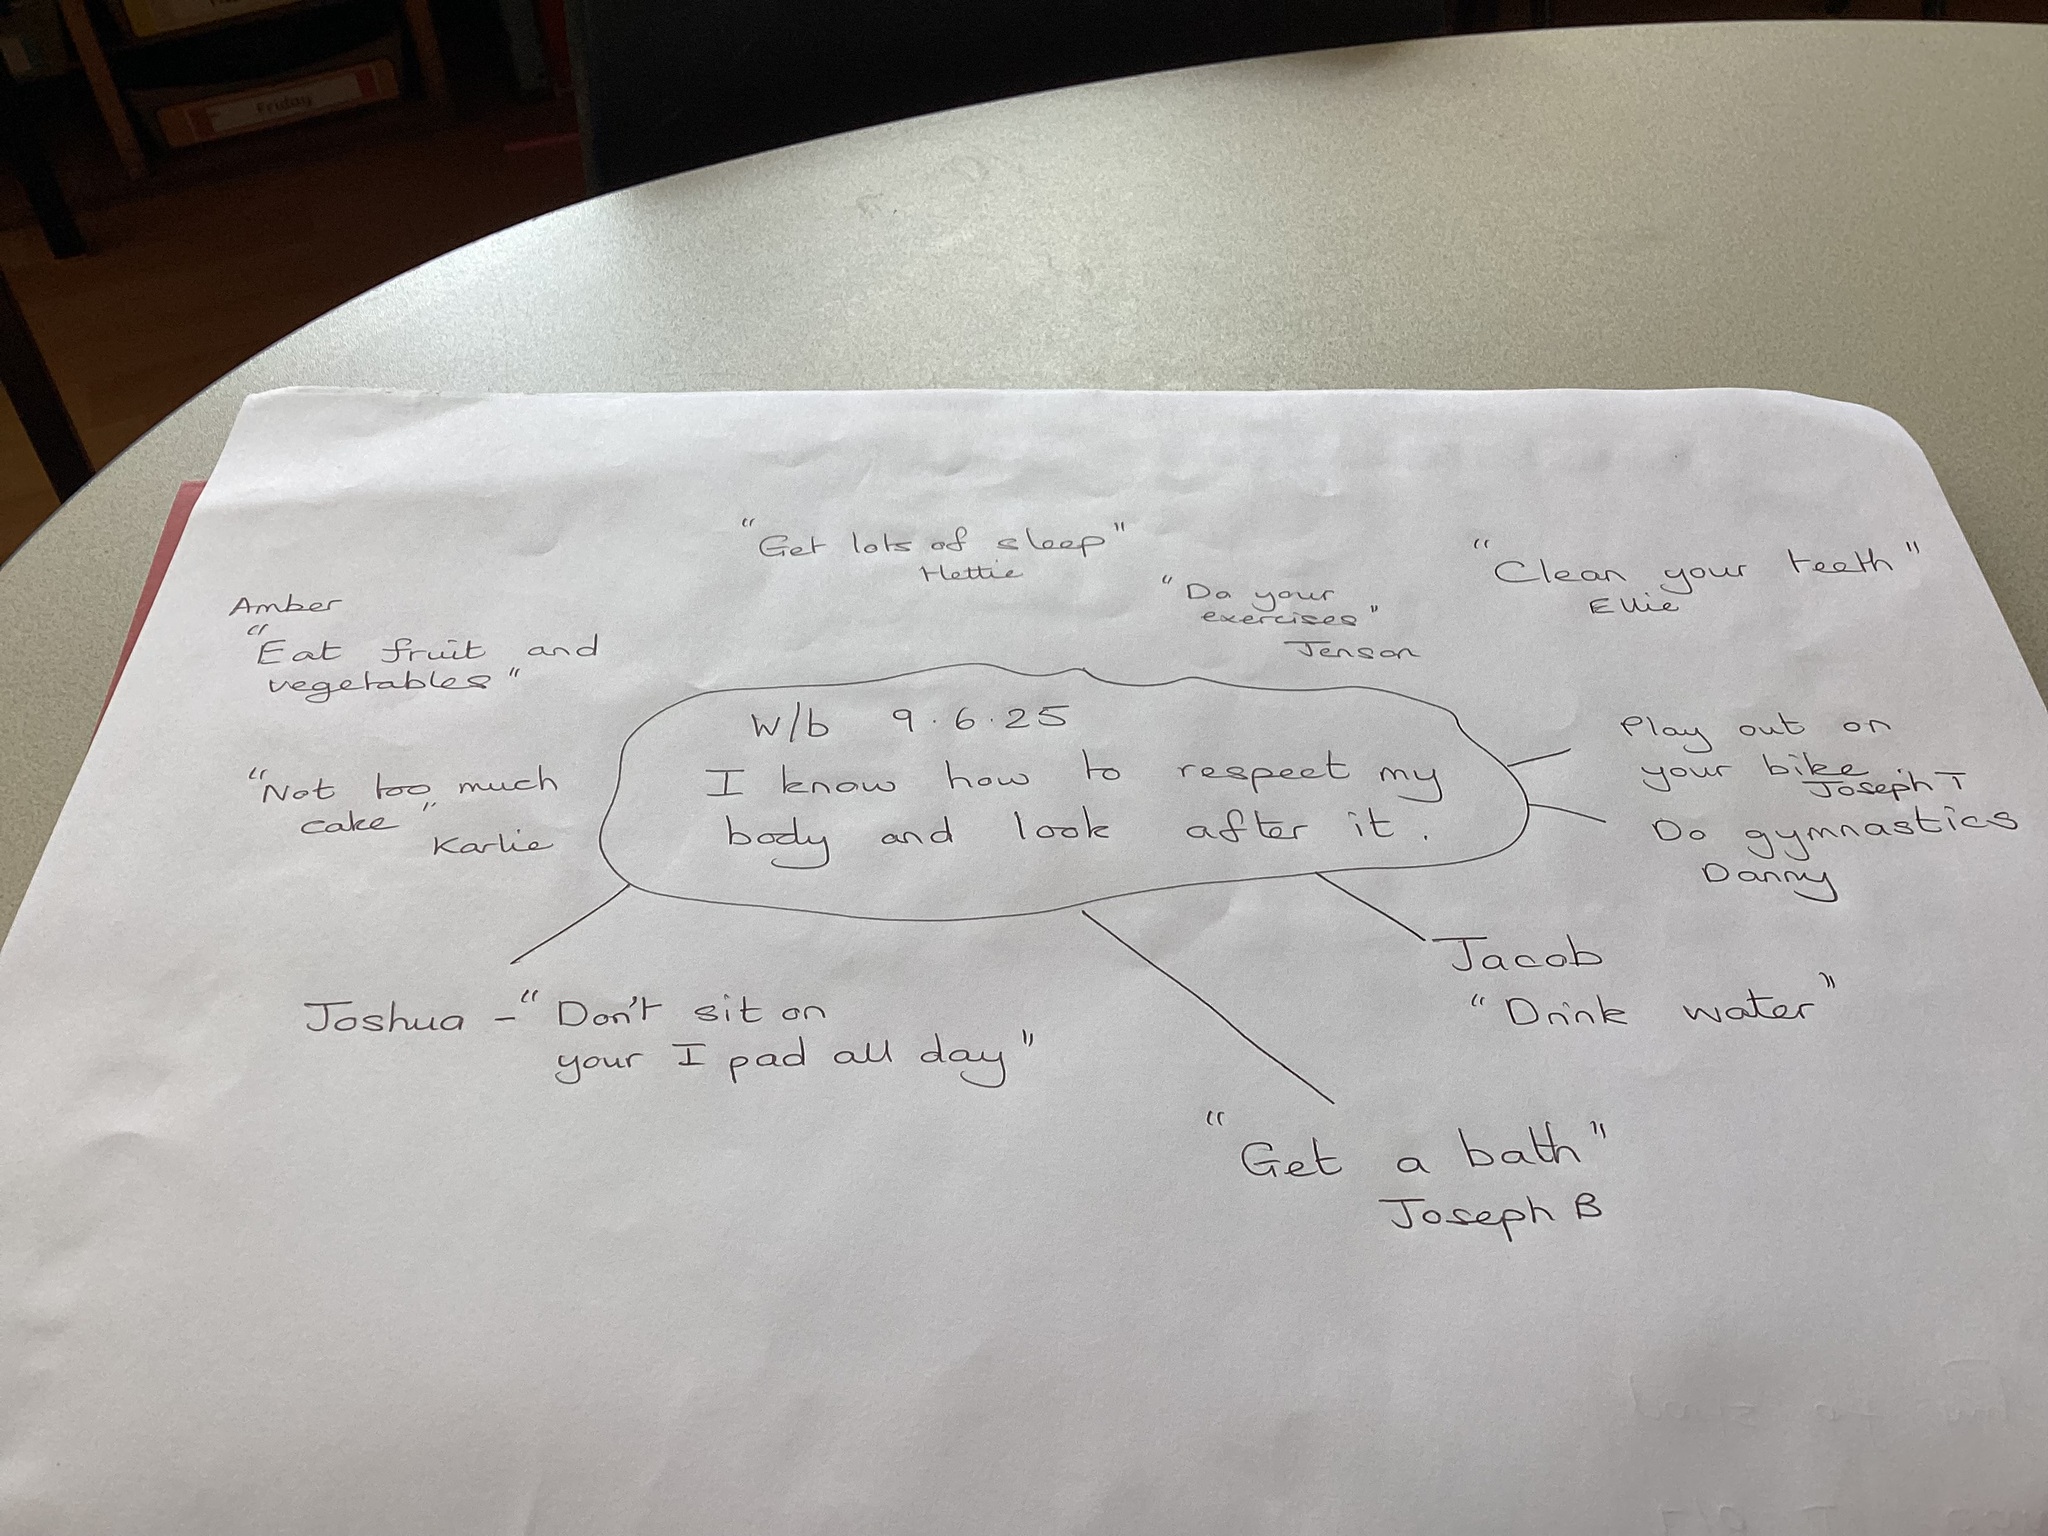 Friday
"Get lots of sleep"
Hettie
"Do your
exercises"
Jenson
"Clean your teeth"
Ellie
Amber
"Eat fruit and
vegetables"
"Not too much
cake"
Karlie
W/b 9.6.25
I know how to respect my
body and look after it.
Play out on
your bike
Joseph T
Do gymnastics
Danny
Jacob
"Drink water"
Joshua - "Don't sit on
your I pad all day"
"Get a bath"
Joseph B